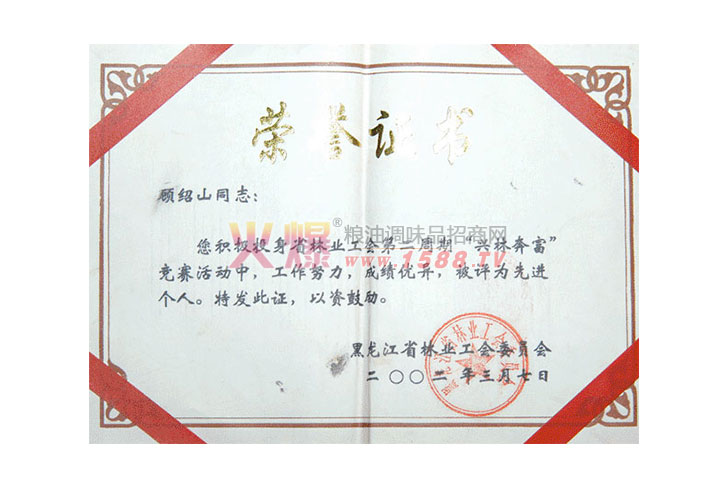 荣誉证书
顾绍山同志：
您积极投身省林业工会第二周期“兴林奔富”
竞赛活动中，工作努力，成绩优异，被评为先进
个人。特发此证，以资鼓励。
火爆®粮油调味品招商网
www.1588.TV
黑龙江省林业工会委员会
二〇〇二年三月七日